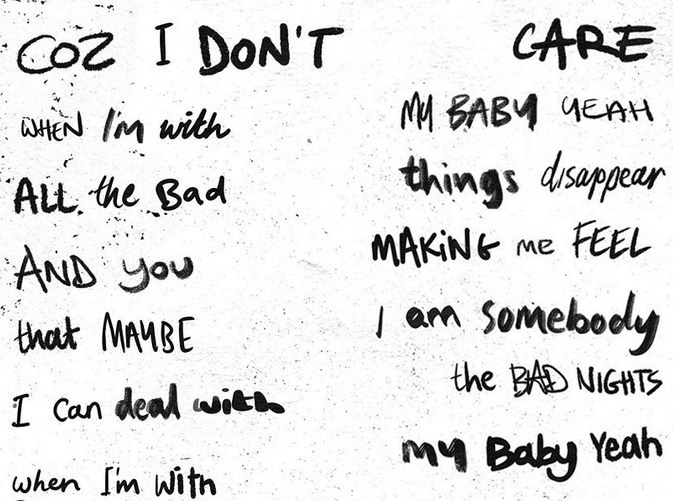 COZ I DON'T CARE
WHEN I'm with MY BABY YEAH
ALL the Bad things disappear
AND you MAKiNG me FEEL
that MAYBE I am somebody
I can deal with the BAD NIGHTS
when I'm With my Baby Yeah